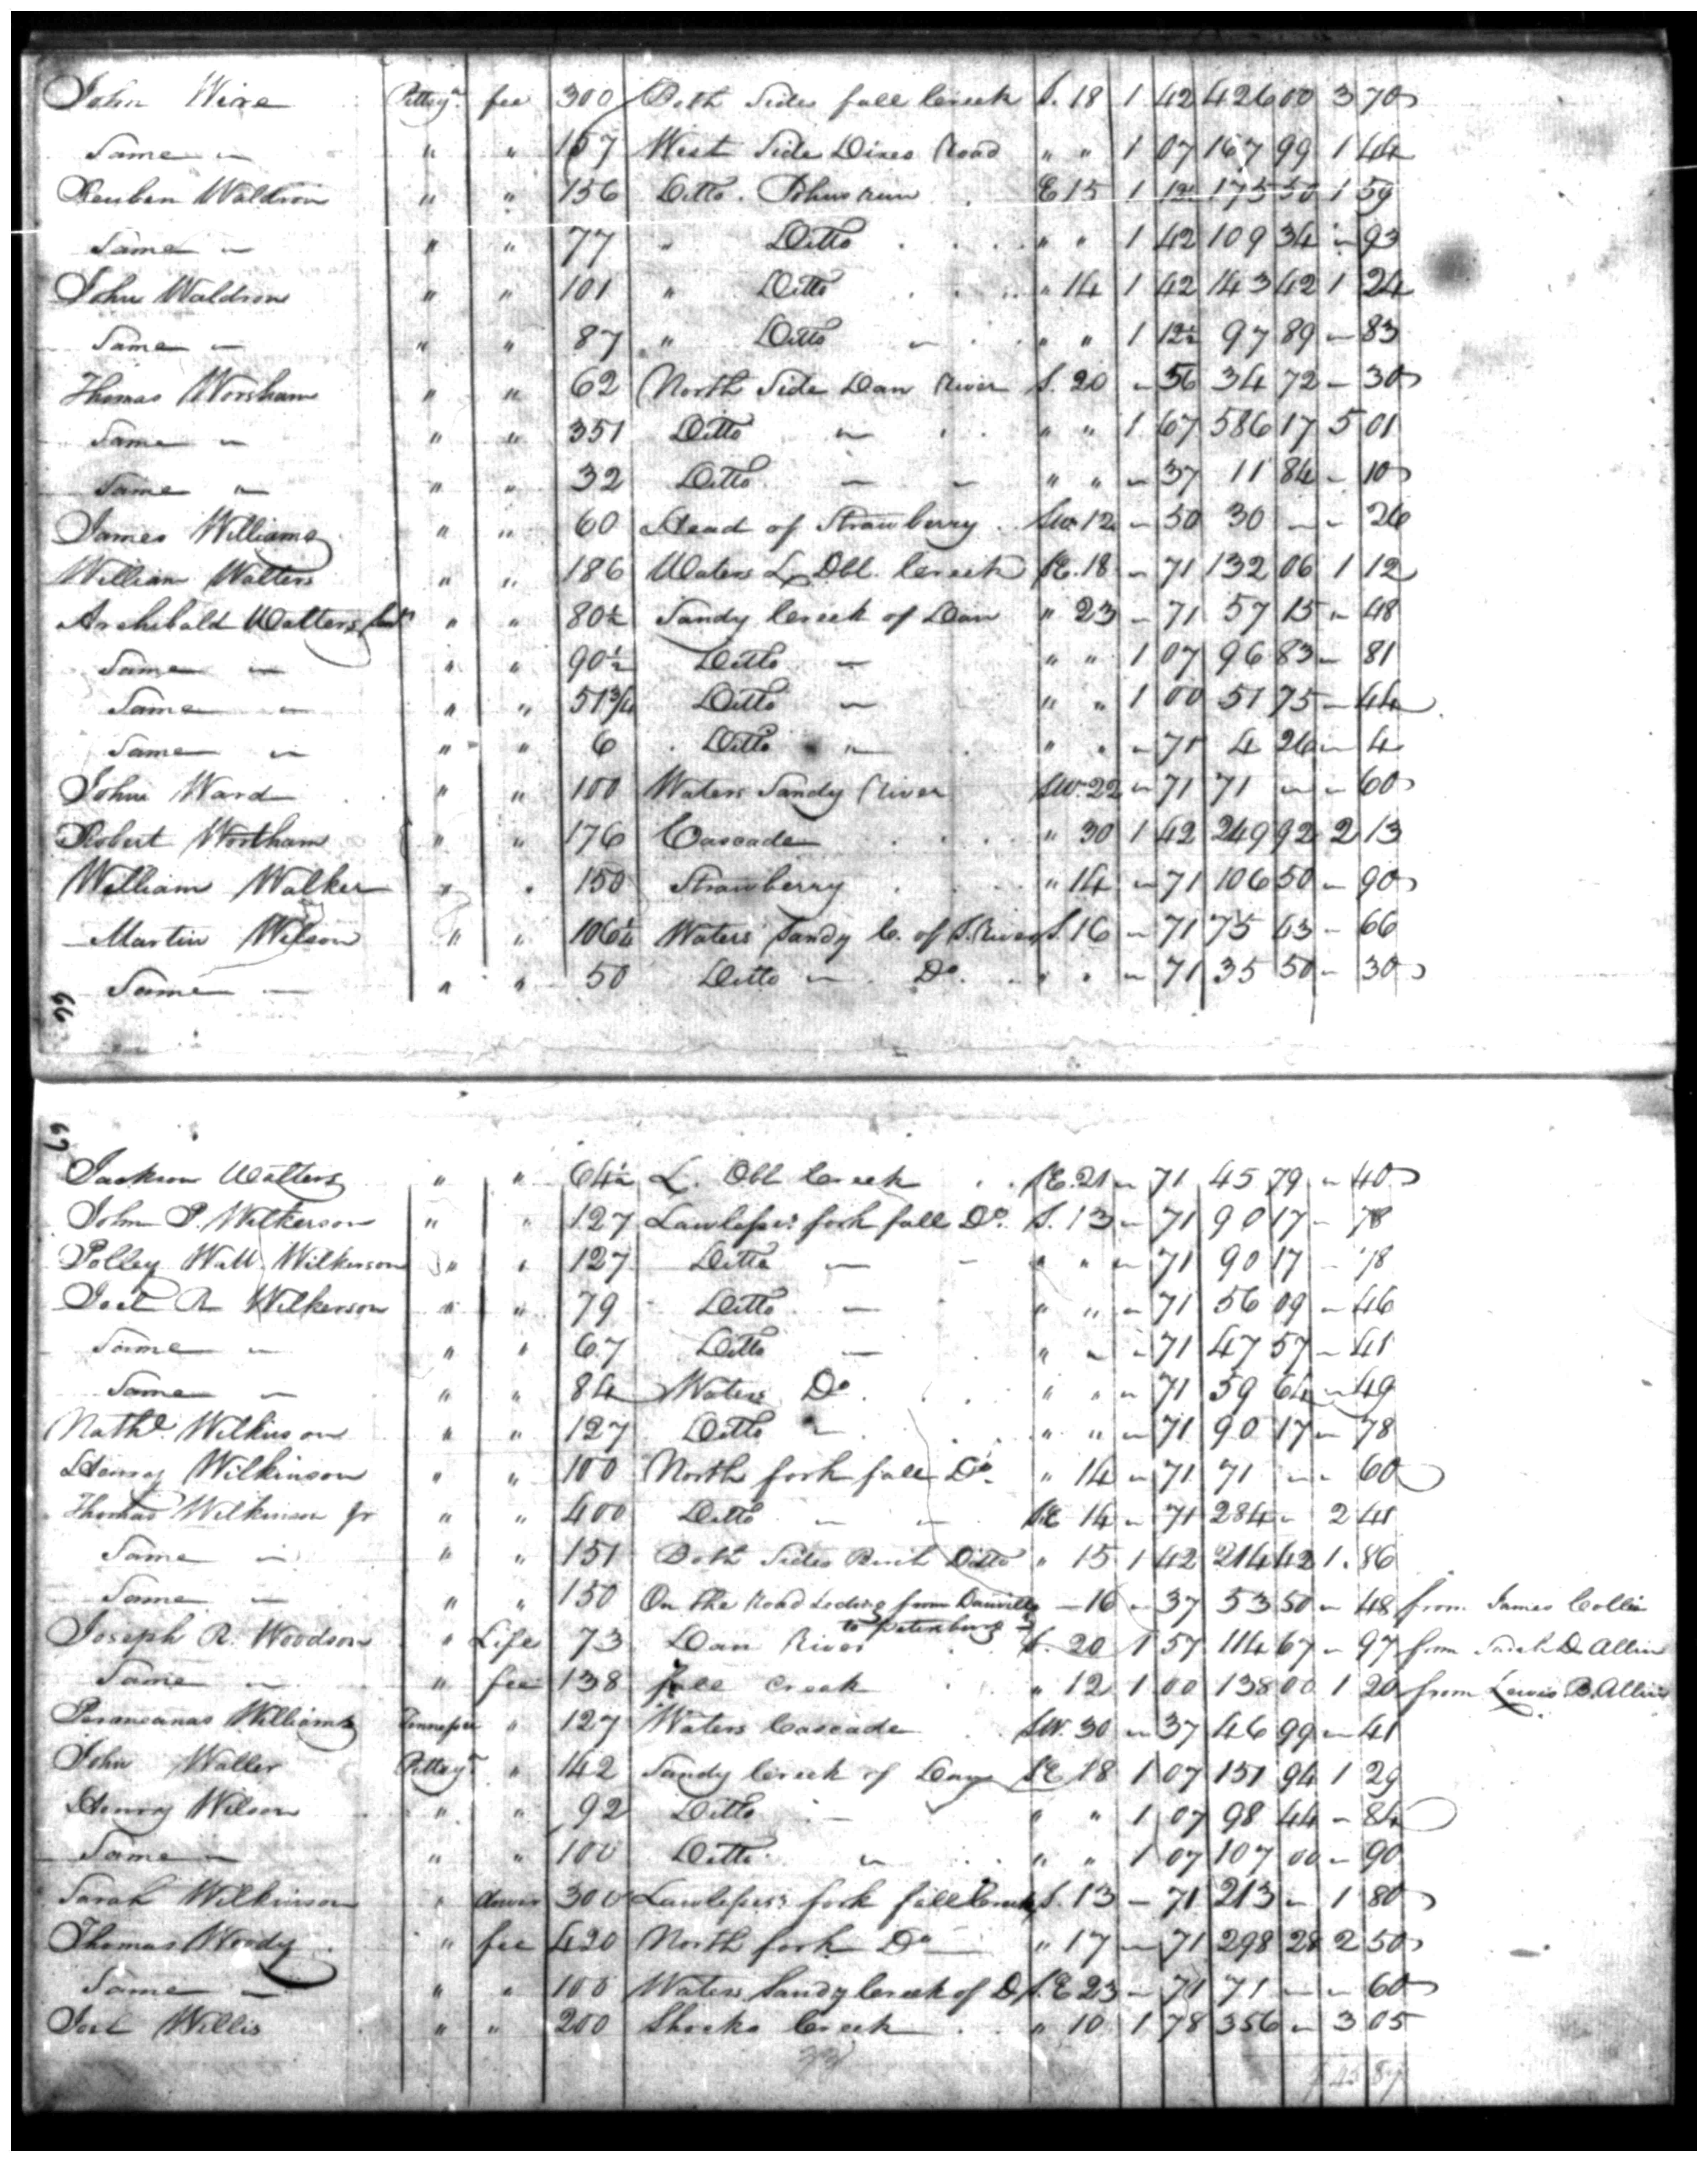 John Wire Pittsya. fee 300 Both Sides fall Creek S. 18 1 42 426 00 3 70
Same " " " 157 West Side Dixes Road " " 1 07 167 99 1 44
Reuben Waldron " " 156 Ditto. Johns run E 15 1 12½ 175 50 1 50
Same " " " 77 " Ditto " " 1 42 109 34 " 93
John Waldron " " 101 " Ditto " 14 1 42 143 42 1 24
Same " " " 87 " Ditto " " " 1 12½ 97 89 " 83
Thomas Worsham " " 62 North Side Dan River S. 20 " 56 34 72 " 30
Same " " " 351 Ditto " " " 1 67 586 17 5 01
Same " " " 32 Ditto " " " " " 37 11 84 " 10
James Williams " " 60 Head of Strawberry SW. 12 " 50 30 " " 26
William Walters " " 186 Waters L. Dbl. Creek SE. 18 " 71 132 06 1 12
Archibald Walters " " 80½ Sandy Creek of Dan " 23 " 71 57 15 " 48
Same " " " 90½ Ditto " " " 1 07 96 83 " 81
Same " " " 51¾ Ditto " " " 1 00 51 75 " 44
Same " " " 6 Ditto " " " " 71 4 26 " 4
John Ward " " 100 Waters Sandy River SW. 22 " 71 71 " " 60
Robert Wortham " " 176 Cascade " 30 1 42 249 92 2 13
William Walker " " 150 Strawberry " 14 " 71 106 50 " 90
Martin Wilson " " 106¼ Waters Sandy C. of S. River S. 16 " 71 75 43 " 66
Same " " " 50 Ditto " Do. " " " 71 35 50 " 30
66
67
Jackson Walters " " 64½ L. Dbl Creek SE. 21 " 71 45 79 " 40
John P. Wilkerson " " 127 Lawless's fork fall Do. S. 13 " 71 90 17 " 78
Polley Watt Wilkerson " " 127 Ditto " " " " " 71 90 17 " 78
Joel R Wilkerson " " 79 Ditto " " " " 71 56 09 " 46
Same " " " 67 Ditto " " " " 71 47 57 " 41
Same " " " 84 Waters Do " " " 71 59 64 " 49
Nathl. Wilkinson " " 127 Ditto " " " " 71 90 17 " 78
Henry Wilkinson " " 100 North fork fall Do. " 14 " 71 71 " " 60
Thomas Wilkinson Jr " " 400 Ditto " " SE 14 " 71 284 " 2 41
Same " " " 151 Both Sides Ditto " 15 1 42 214 42 1. 86
Same " " " 150 On the Road Leding from Danville " 16 " 37 53 50 " 48 from James Collin
to Petersburg
Joseph R. Woodson " Life 73 Dan River S. 20 1 57 114 67 " 97 from Sarah D Allin
Same " " fee 138 fall Creek " 12 1 00 138 00 1 20 from Lewis B. Allin
Williams Tennessee " 127 Waters Cascade SW. 30 " 37 46 99 " 41
John Waller Pittsya. " 142 Sandy Creek of Dan SE 18 1 07 151 94 1 29
Henry Wilson " " 92 Ditto " " " 1 07 98 44 " 84
Same " " " 100 Ditto " " " 1 07 107 00 " 90
Sarah Wilkinson " dower 300 Lawless's fork fall Creek S. 13 " 71 213 " 1 80
Thomas Woody " fee 420 North fork Do " 17 " 71 298 28 2 50
Same " " " 100 Waters Sandy Creek of D S. E 23 " 71 71 " " 60
Joel Willis " " 200 Shocks Creek " 10 1 78 356 " 3 05